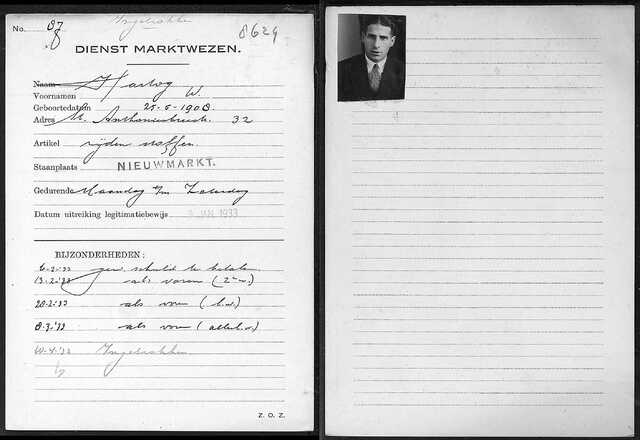 Ingetrokken
No. 87
8629
DIENST MARKTWEZEN.
Naam Hartog
Voornamen W.
Geboortedatum 25-5-1908.
Adres St. Anthoniebreestr. 32
Artikel zijden stoffen.
Staanplaats NIEUWMARKT.
Gedurende Maandag t/m Zaterdag
Datum uitreiking legitimatiebewijs JAN 1933
BIJZONDERHEDEN:
6-2-'33 gew. schuld te betalen
13-2-'33 als voren (2e w.)
20-2-'33 als voren
8-3-'33 als voren
Ingetrokken
Z. O. Z.